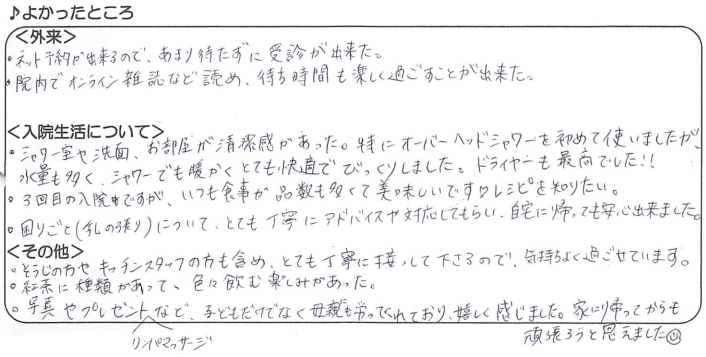 ♪よかったところ
<外来>
・ネット予約が出来るので、あまり待たずに受診が出来た。
・院内でオンライン雑誌など読め、待ち時間も楽しく過ごすことが出来た。
<入院生活について>
・シャワー室や洗面、お部屋が清潔感があった。特にオーバーヘッドシャワーを初めて使いましたが、
水量も多く、シャワーでも暖かくとても快適でびっくりしました。ドライヤーも最高でした!!
・3回目の入院ですが、いつも食事が品数も多くて美味しいです♡レシピを知りたい。
・困りごと(乳の張り)について、とても丁寧にアドバイスや対応してもらい、自宅に帰っても安心出来ました。
<その他>
・そうじの方やキッチンスタッフの方も含め、とても丁寧に接して下さるので、気持ちよく過ごせています。
・紅茶に種類があって、色々飲む楽しみがあった。
・写真やプレゼントなど、子どもだけでなく母親も労ってくれており、嬉しく感じました。家に帰ってからも
リンパマッサージ
頑張ろうと思えました☺